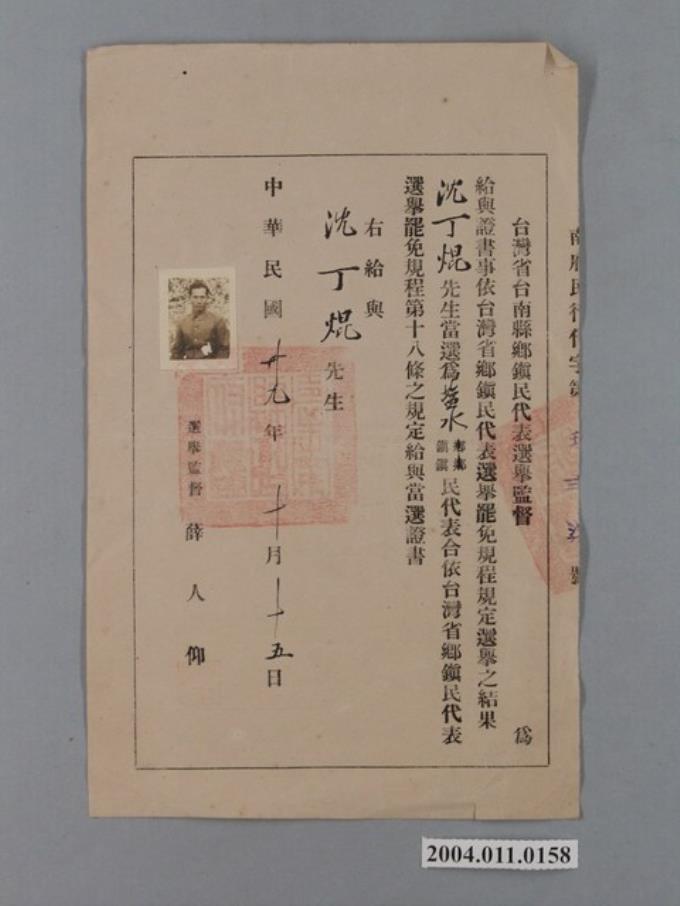 台灣省台南縣鄉鎭民代表選舉監督 爲
給與證書事依台灣省鄉鎭民代表選舉罷免規程規定選舉之結果
沈丁焜先生當選爲塩水鄉鎭鄉鎭民代表合依台灣省鄉鎭民代表
選舉罷免規程第十八條之規定給與當選證書
右給與
沈丁焜先生
中華民國卅九年十一月十五日
選舉監督 薛人仰
2004.011.0158